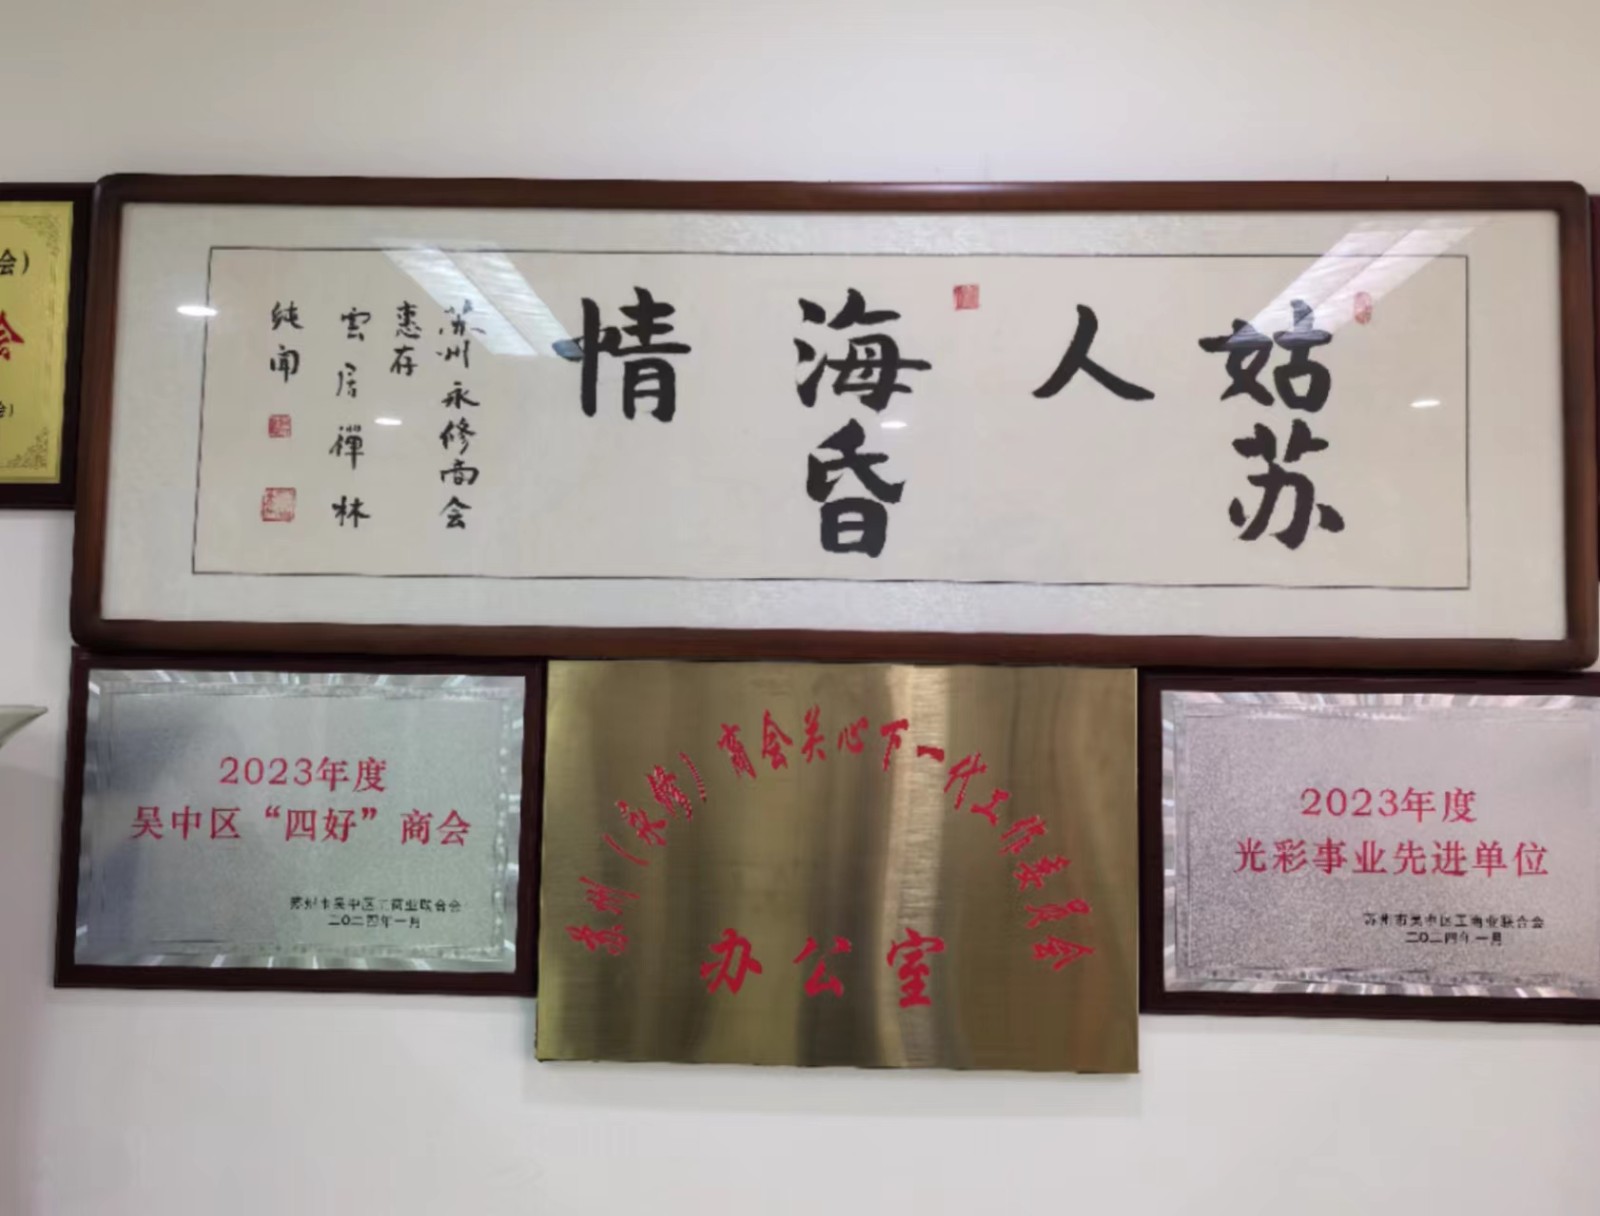 姑苏
人
海昏
情
苏州永修商会
惠存
雲居禪林
纯闻
会）
会
会）
2023年度
吴中区“四好”商会
苏州市吴中区工商业联合会
二〇二四年一月
苏州（永修）商会关心下一代工作委员会
办公室
2023年度
光彩事业先进单位
苏州市吴中区工商业联合会
二〇二四年一月